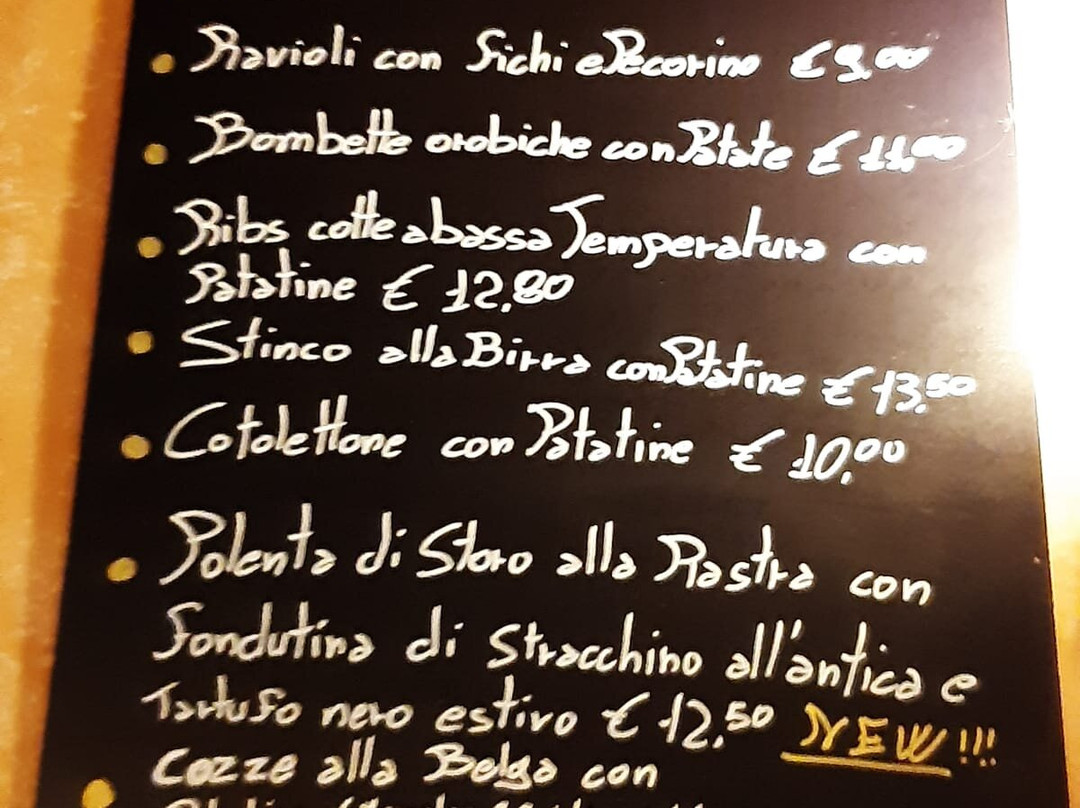 Ravioli con Fichi e Pecorino € 9,00
Bombette orobiche con Patate € 11,00
Ribs cotte a bassa Temperatura con
Patatine € 12,80
Stinco alla Birra con Patatine € 13,50
Cotolettone con Patatine € 10,00
Polenta di Storo alla Piastra con
Fondutina di Stracchino all'antica e
Tartufo nero estivo € 12,50 NEW!!!
Cozze alla Belga con